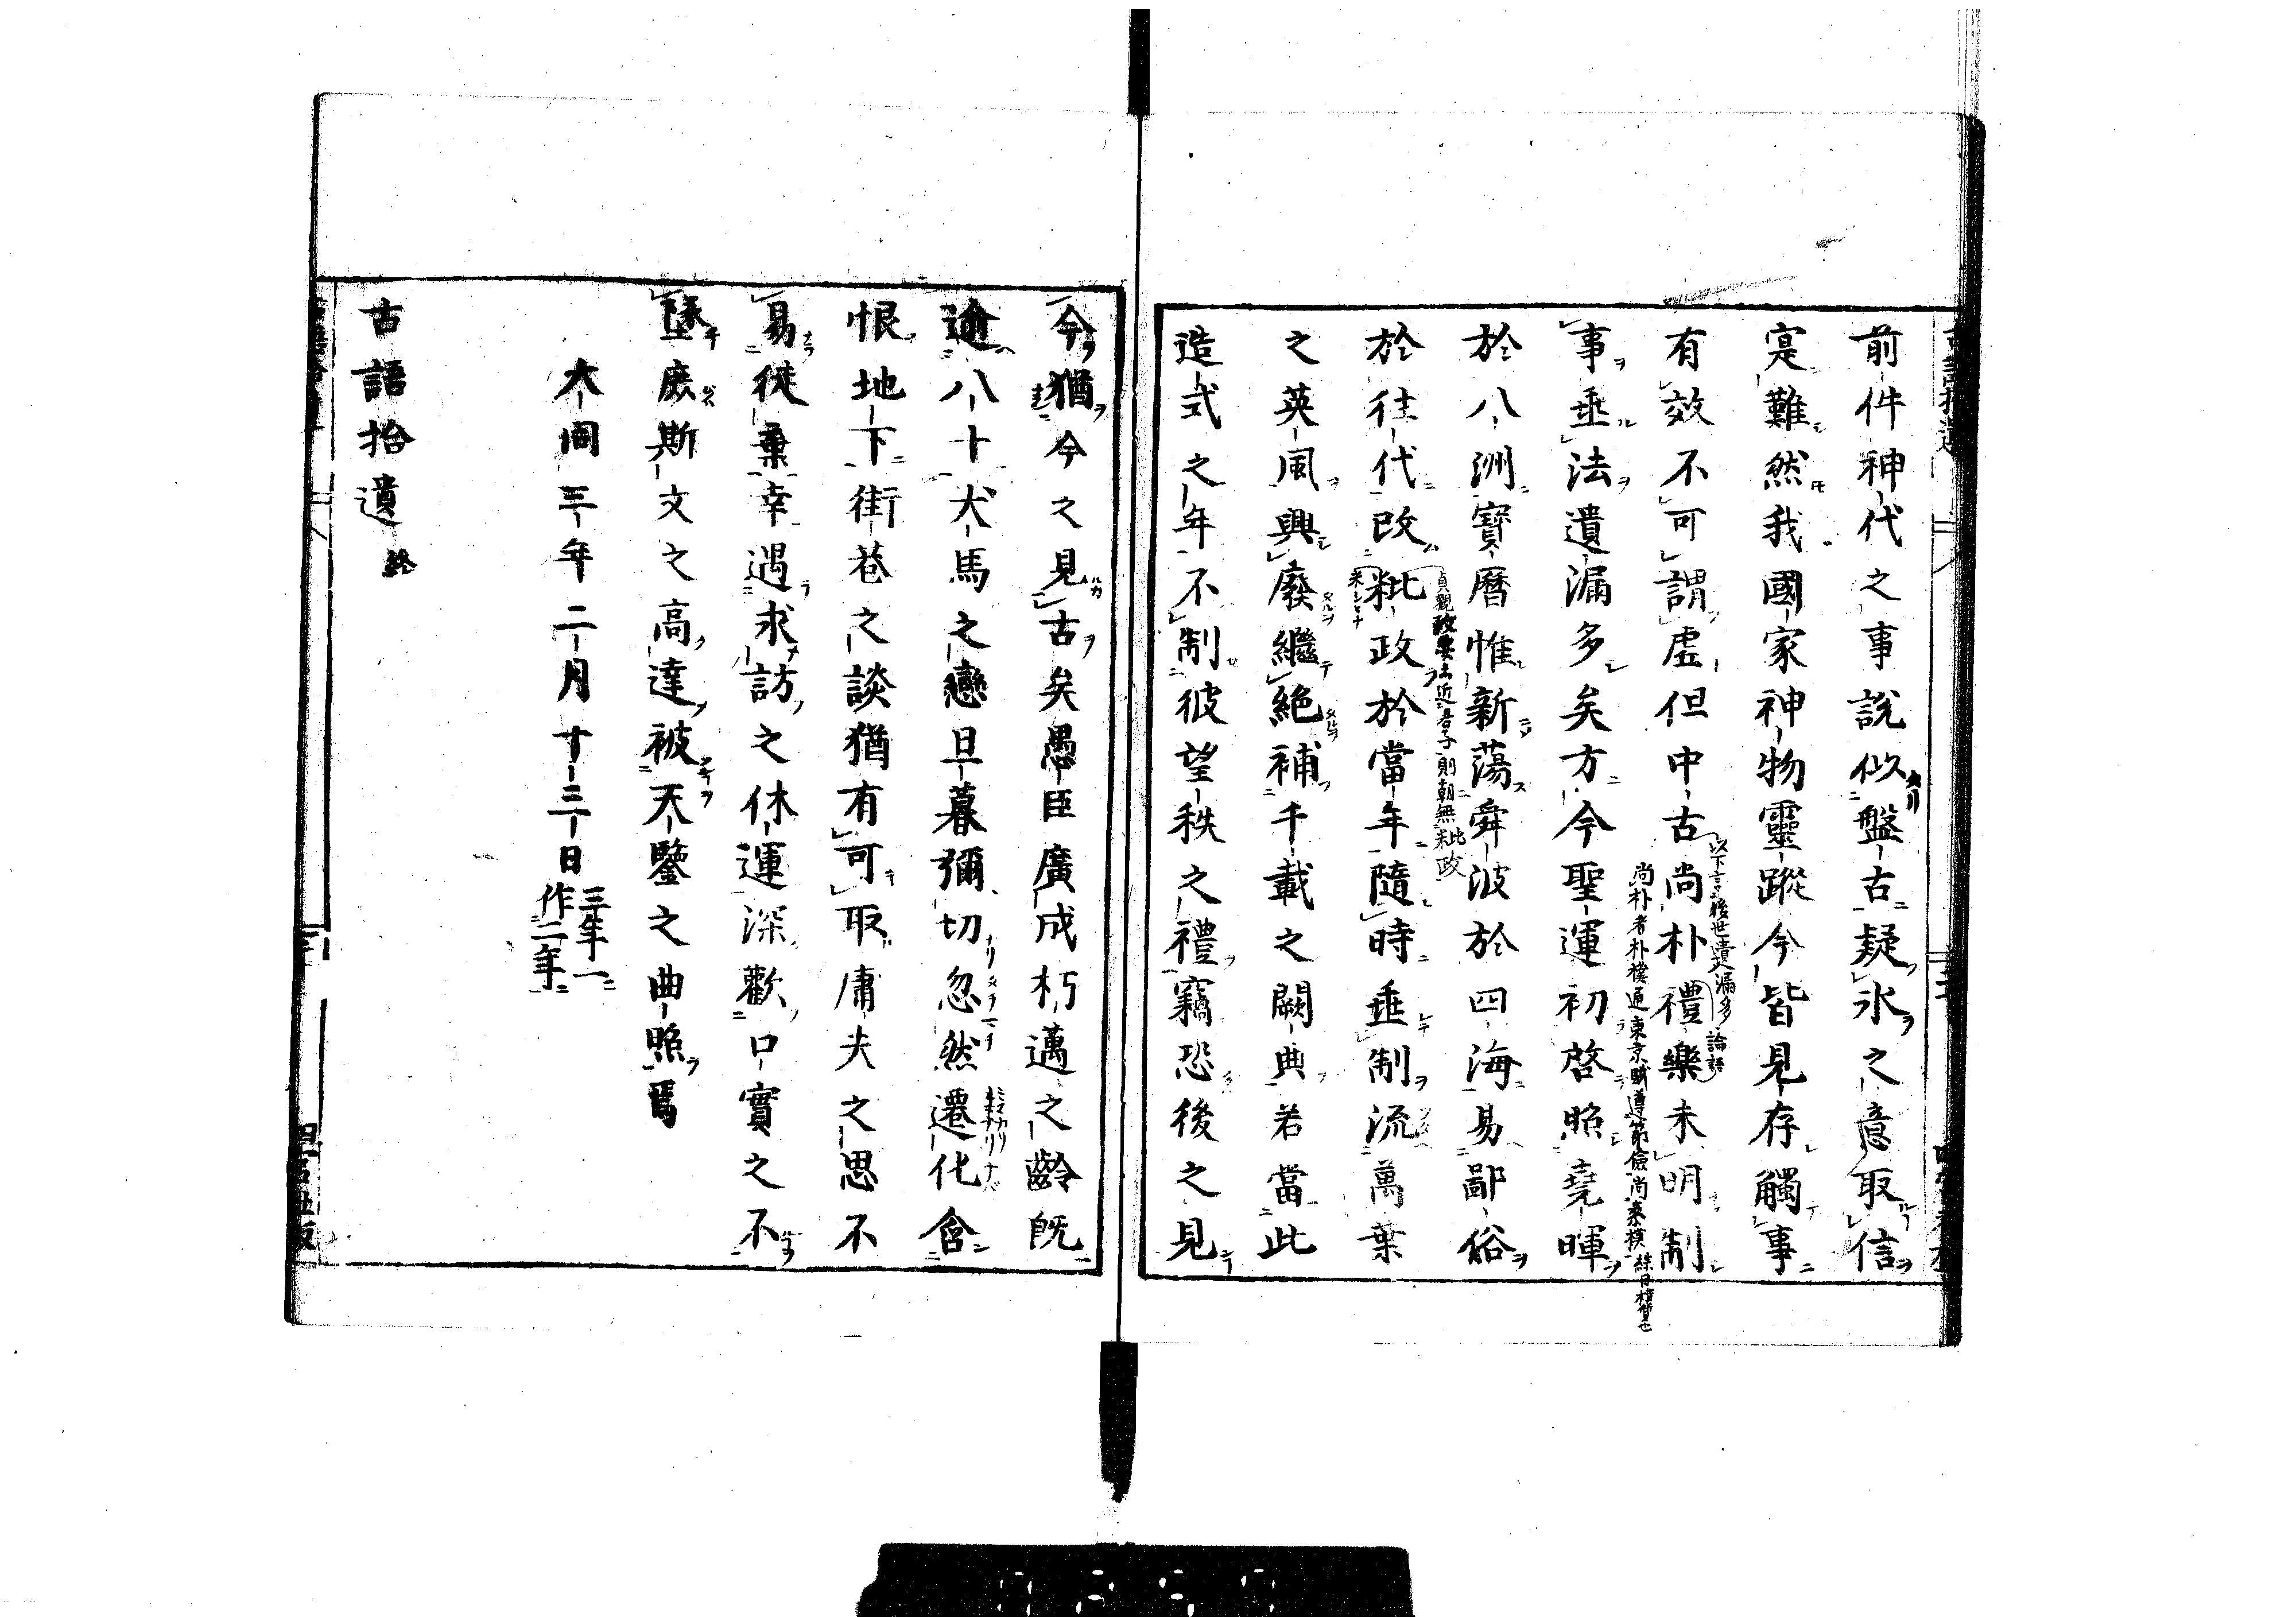 前件神代之事説似盤古疑氷之意取信
寔難然我國家神物靈蹤今皆見存觸事
有效不可謂虚但中古尚朴禮樂未明制
事垂法遺漏多矣方今聖運初啓照堯暉
於八洲寶暦惟新蕩舜波於四海易鄙俗
於往代改粃政於當年隨時垂制流萬葉
之英風興廢繼絶補千載之闕典若當此
造式之年不制彼望秩之禮竊恐後之見
今猶今之見古矣愚臣廣成朽邁之齡既
逾八十犬馬之戀旦暮彌切忽然遷化含
恨地下街巷之談猶有可取庸夫之思不
易徒棄幸遇求訪之休運深歡口實之不
墜庶斯文之高達被天鑒之曲照焉
大同三年二月十三日
三年一
作二年
古語拾遺 終